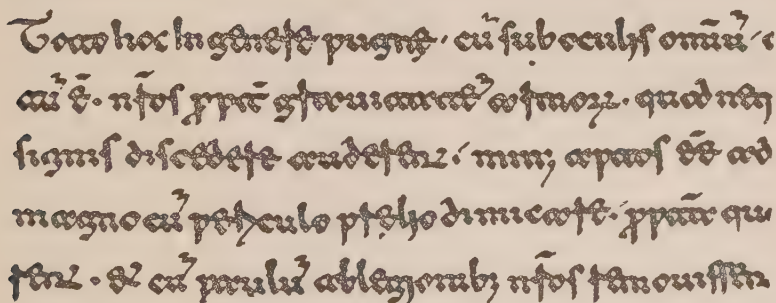 Toto hoc In genere pugne · cũ sub oculis omniũ ·
ctũ ẽ · nr̃os ꝓpt̃ grauitatẽ armoꝝ · quod neq
signis discedere auderent · minꝰ aptos eẽ ad
magno cũ periculo prelio dimicare · ꝓpt̃ea qu
rent · et cũ paulũ ablegionibꝫ nr̃os remouissen